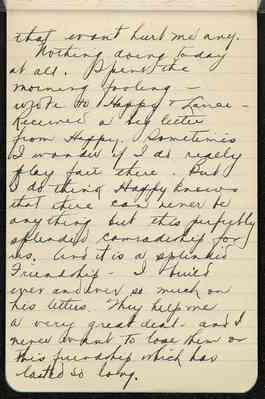 that won't hurt me any.
Nothing doing today
at all. Spent the
morning fooling –
wrote to Happy &
Received a big letter
from Happy. Sometimes
I wonder if I do really
play fair there. But
I do think Happy knows
that there can never be
anything but this perfectly
splendid comradeship for
us. And it is a splendid
Friendship – I build
over and over so much on
his letters. They help me
a very great deal – and I
never want to lose him or
this friendship which has
lasted so long.